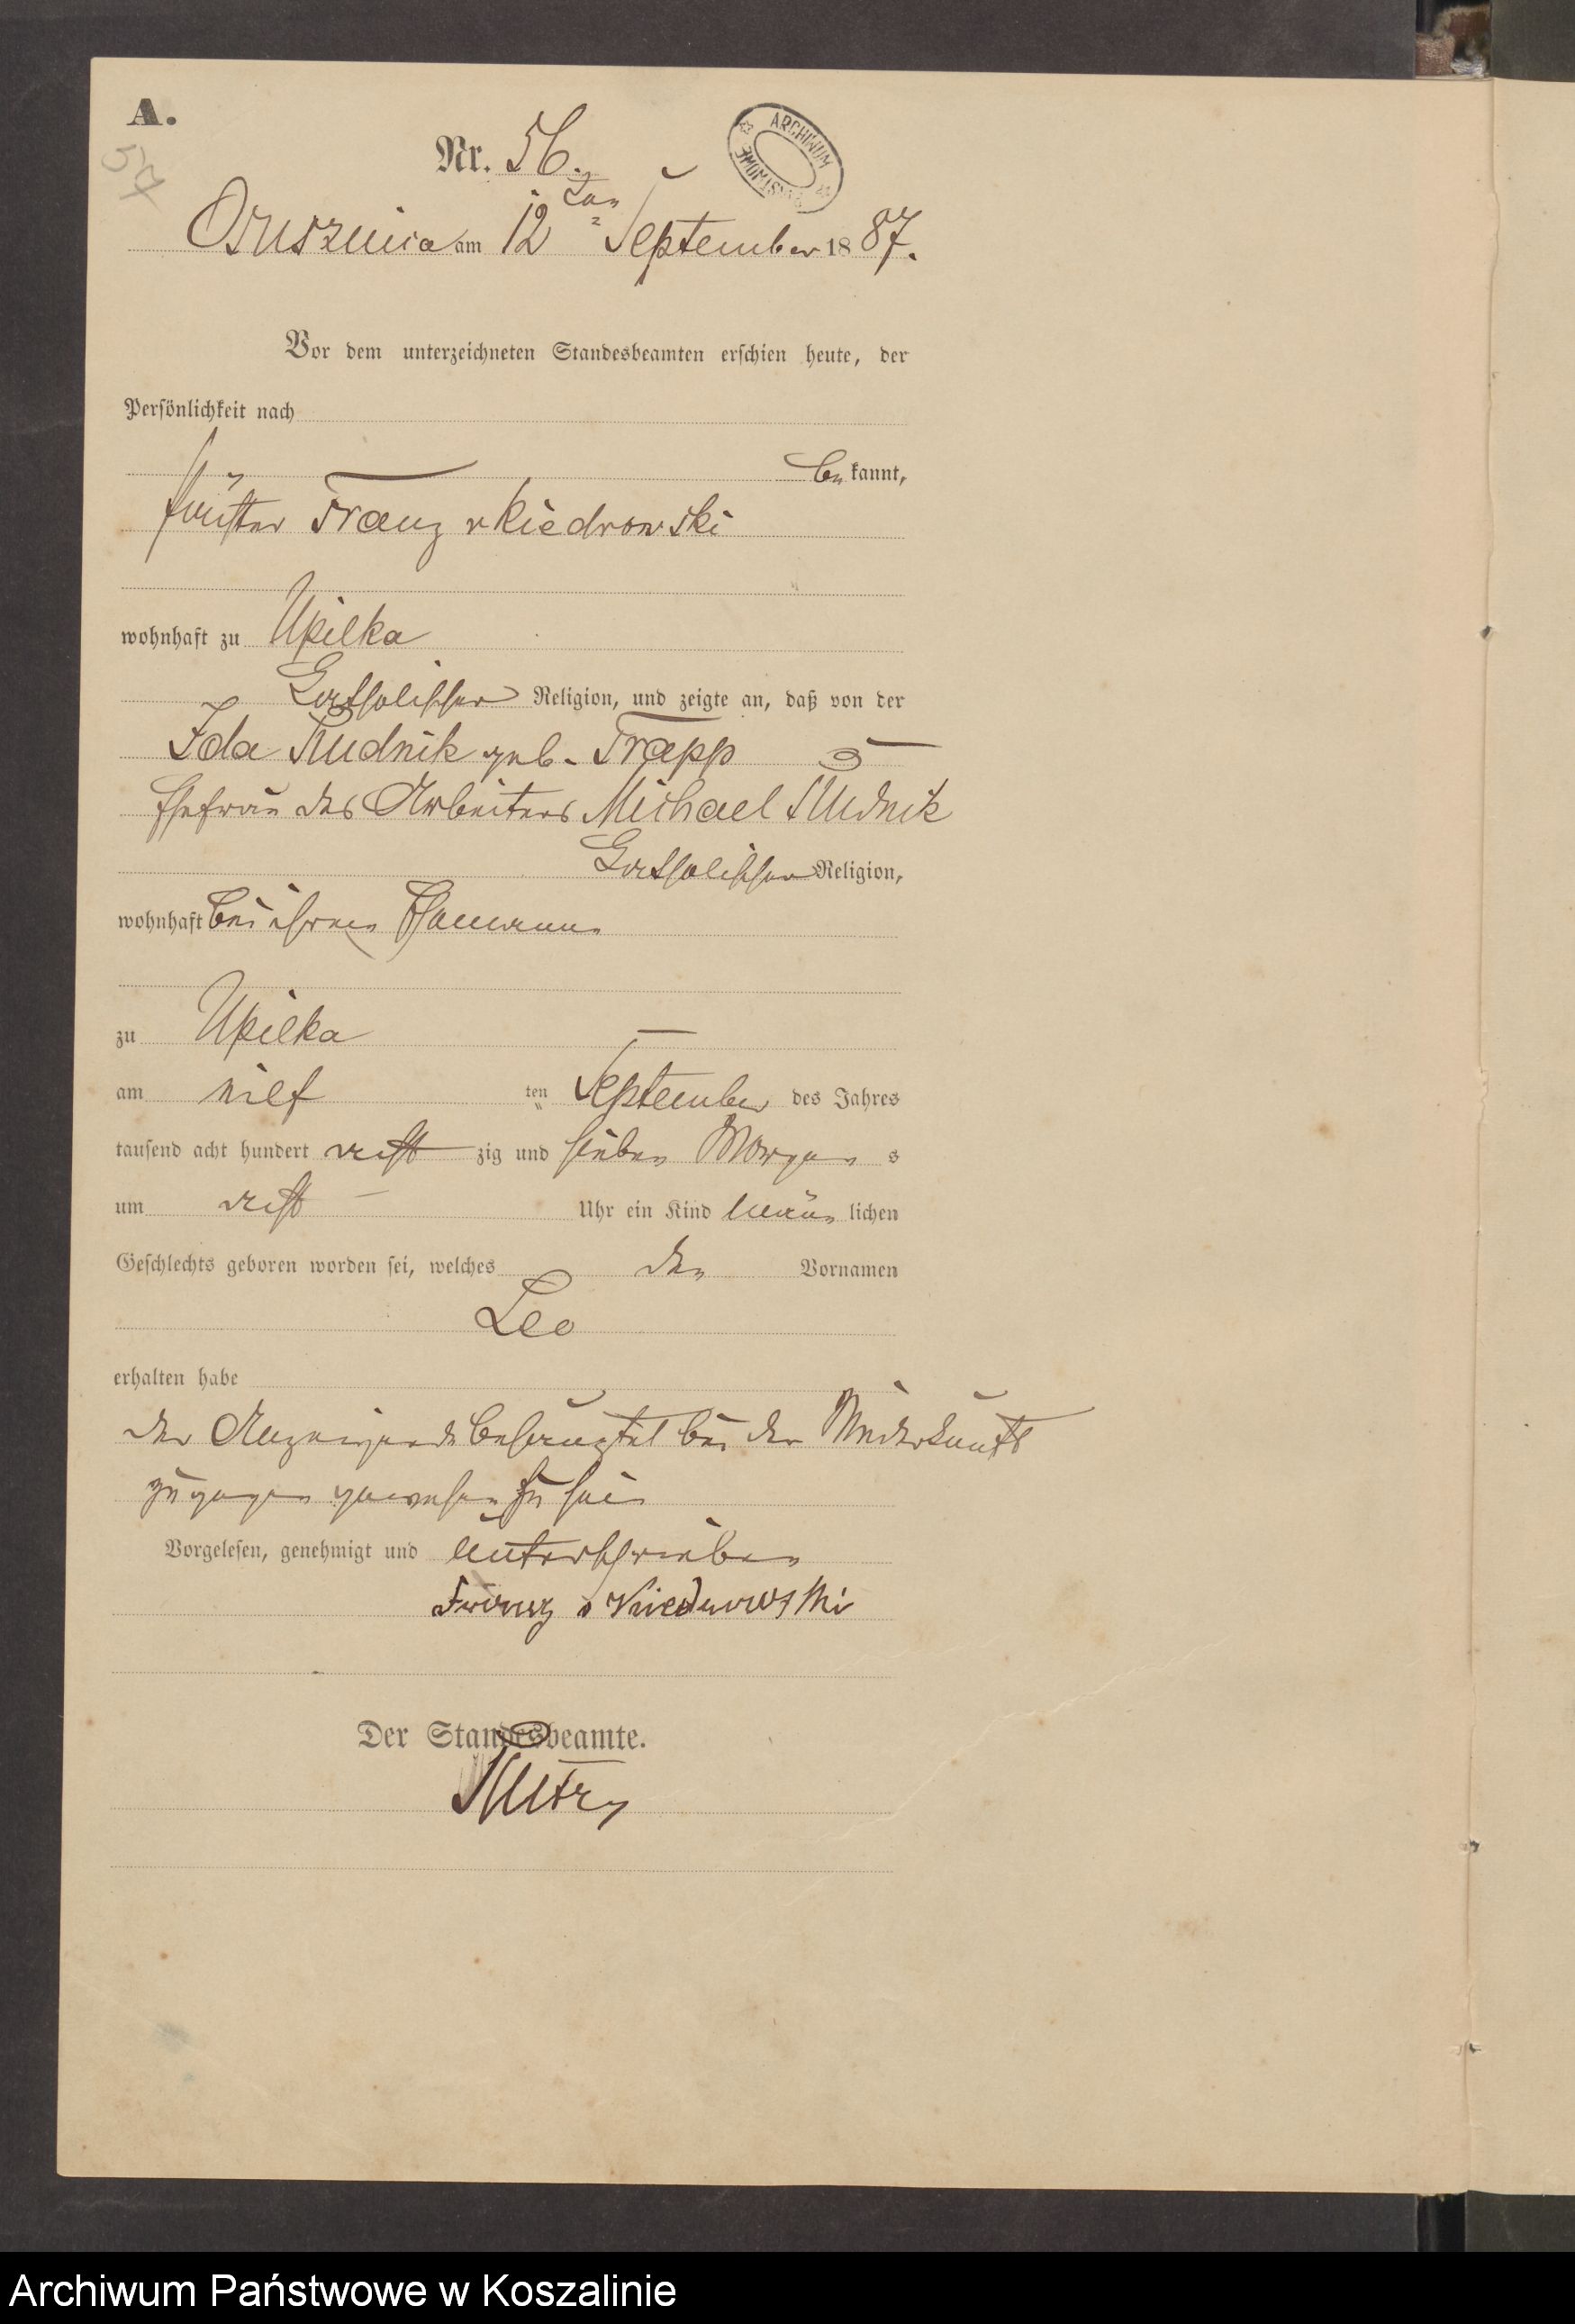 A.
57
Nr. 56.
ARCHIWUM
Osuszniza am 12ten September 1887.
Vor dem unterzeichneten Standesbeamten erschien heute, der
Persönlichkeit nach
be kannt,
Förster Franz v Kiedrowski
wohnhaft zu Upilka
katholischer Religion, und zeigte an, daß von der
Ida Rudnik geb. Trapp
Ehefrau des Arbeiters Michael Rudnik
katholischer Religion,
wohnhaft bei ihrem Ehemann
zu Upilka
am eilf ten September des Jahres
tausend acht hundert acht zig und sieben Morgen s
um acht Uhr ein Kind männ lichen
Geschlechts geboren worden sei, welches den Vornamen
Leo
erhalten habe
der Anzeigende bezeugtet bei der Niederkunft
zugegen gewesen zu sein
Vorgelesen, genehmigt und unterschrieben
Franz v Kiedrowski
Der Standesbeamte.
Archiwum Państwowe w Koszalinie